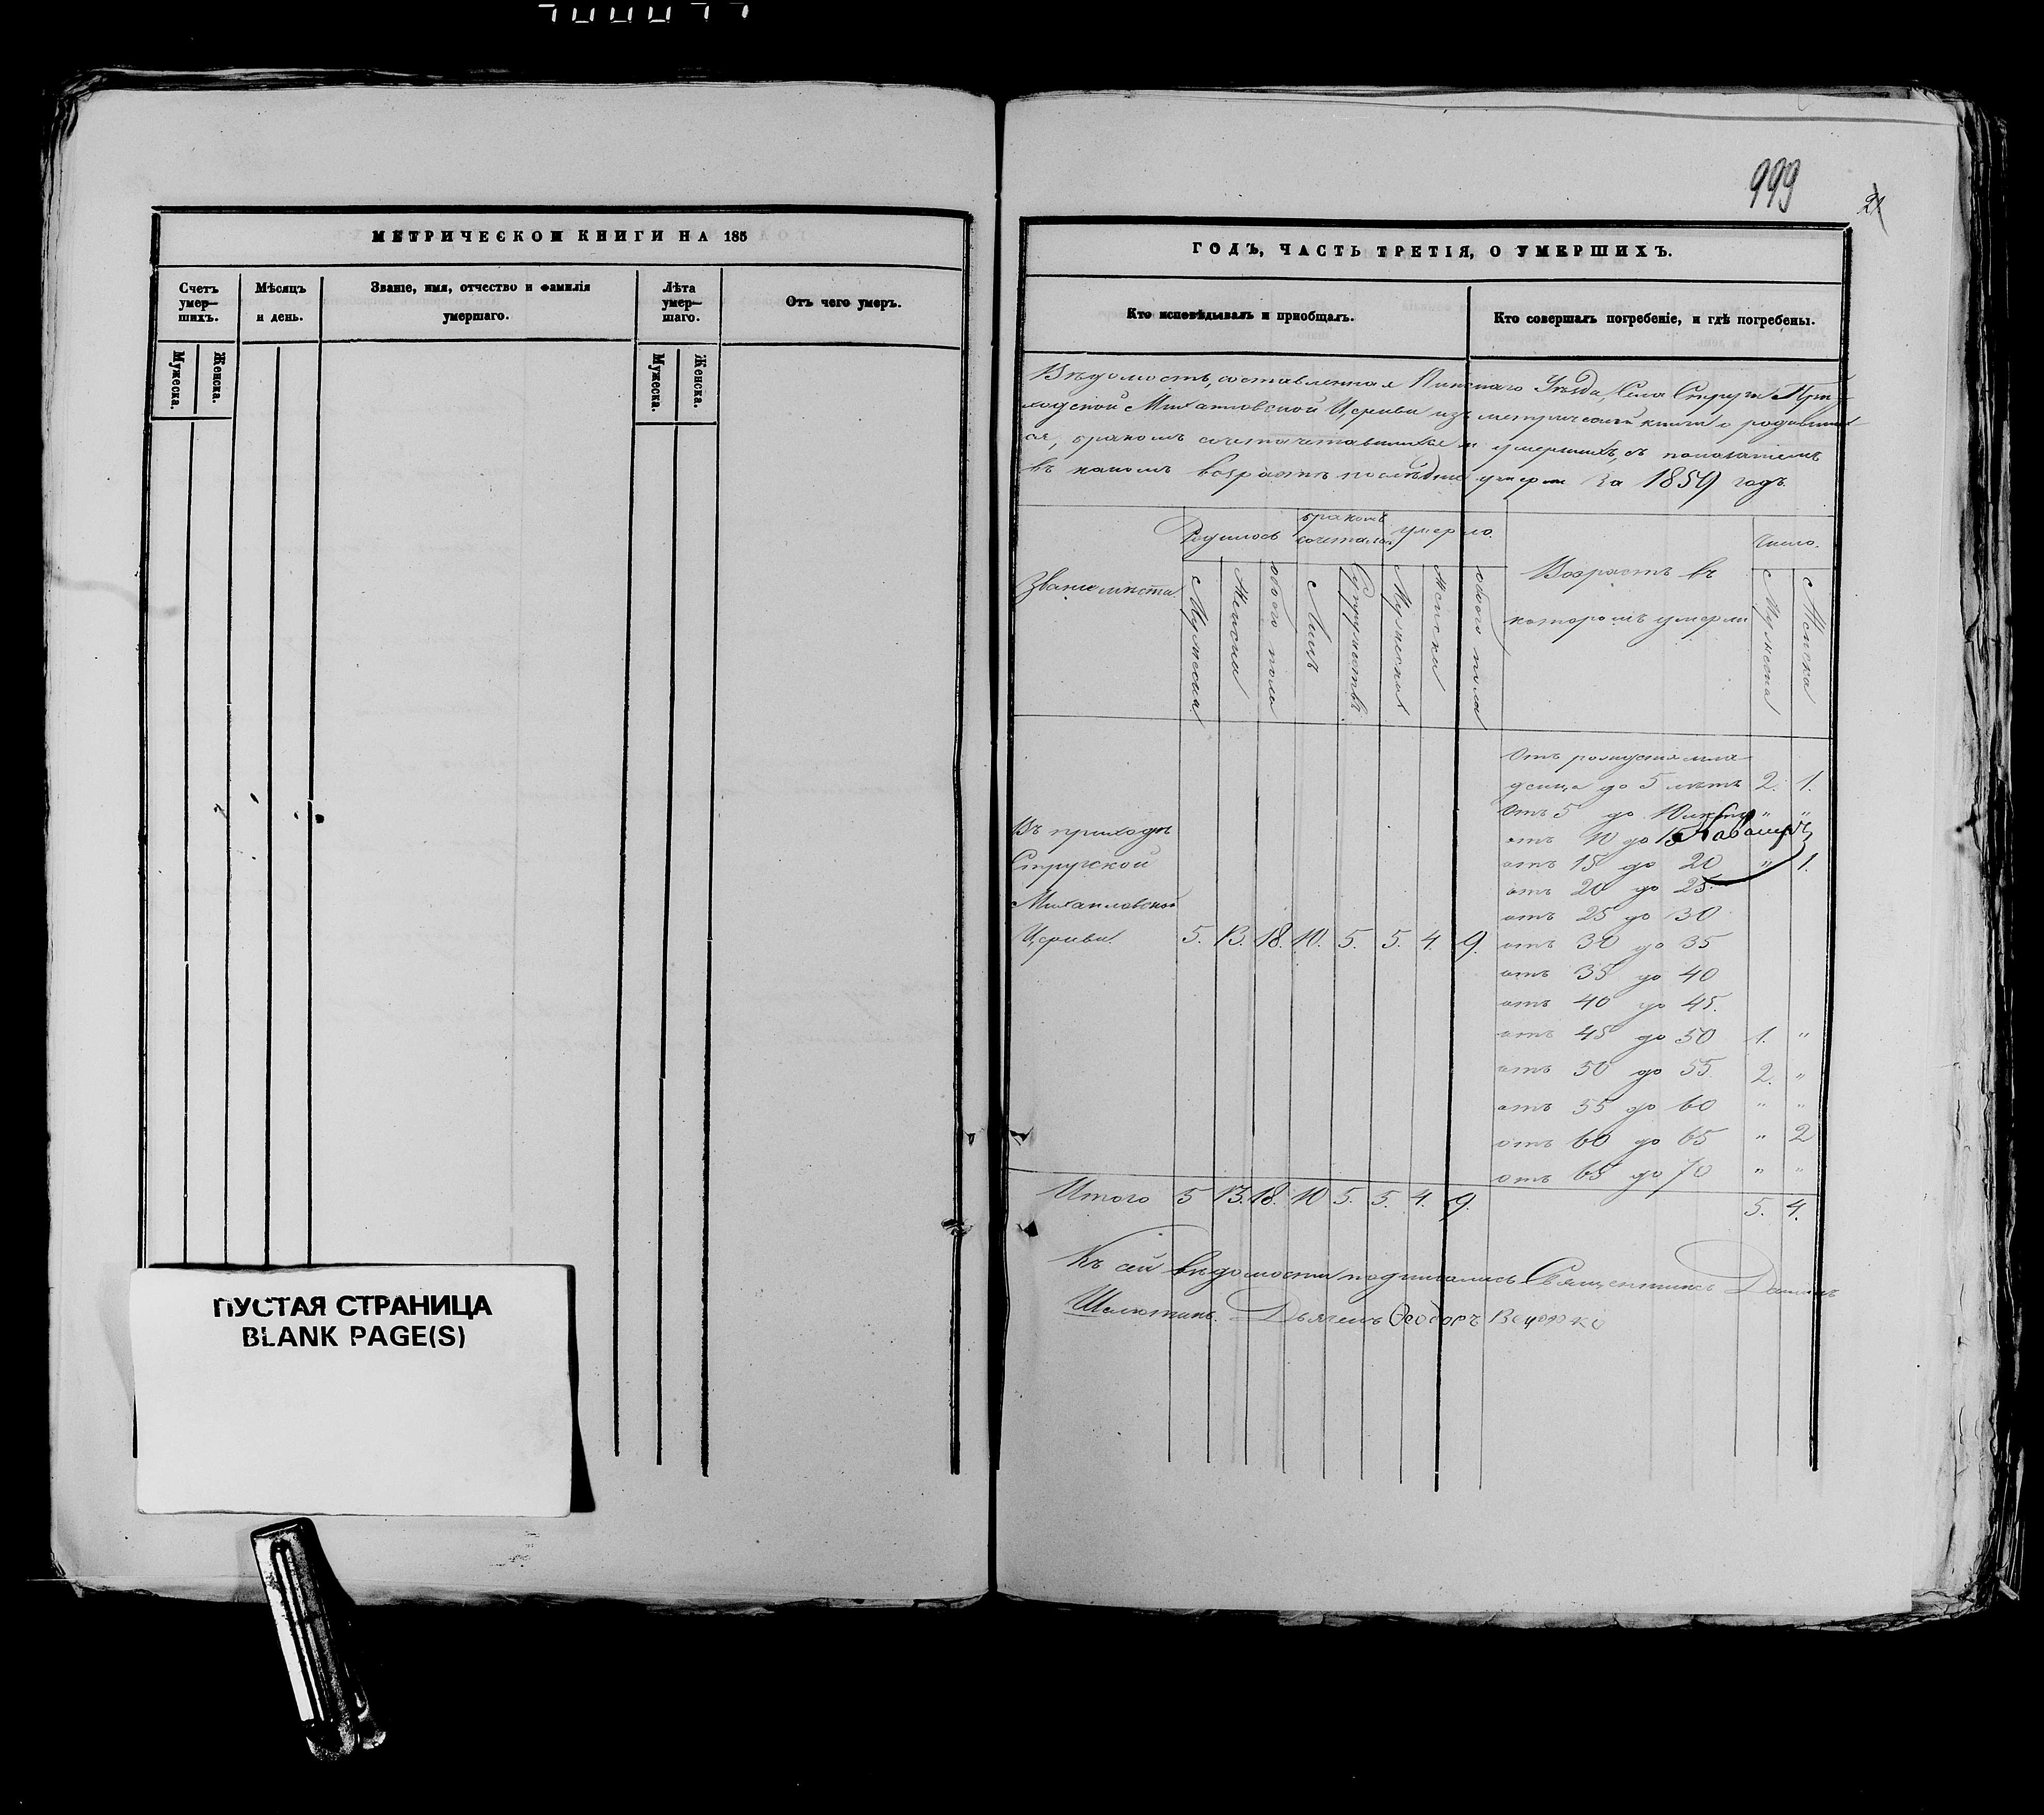 999
21
МЕТРИЧЕСКОЙ КНИГИ НА 185
Счетъ умер-шихъ.
Мѣсяцъ и день.
Званіе, имя, отчество и фамилія умершаго.
Лѣта умер-шаго.
Отъ чего умеръ.
Мужеска.
Женска.
Мужеска.
Женска.
ПУСТАЯ СТРАНИЦА
BLANK PAGE(S)
ГОДЪ, ЧАСТЬ ТРЕТІЯ, О УМЕРШИХЪ.
Кто исповѣдывалъ и пріобщалъ.
Кто совершалъ погребеніе, и гдѣ погребены.
Вѣдомость, составленная Пинскаго Уѣзда, Села Струги При-
ходской Михаиловской Церкви изъ метрической книги о родивших
ся, бракомъ сочеташихся и умершихъ, съ показаніемъ
въ какомъ возрастѣ послѣдніе умерли За 1859 годъ.
Званіе мѣста
Родилось
бракомъ сочеталось
умерло.
Возрастъ въ
которомъ умерли
Число.
Мужеска
Женска
обоего пола
Лицъ
Супружествъ
Мужеска
Женска
обоего пола
Мужеска
Женска
Отъ рожденія мла
денца до 5 лѣтъ 2. 1.
Отъ 5 до 10 лѣтъ " "
отъ 10 до 15
отъ 15 до 20 " 1.
отъ 20 до 25
отъ 25 до 30
Въ приходѣ
Стружской
Михаиловской
Церкви. 5. 13. 18. 10. 5. 5. 4. 9. отъ 30 до 35
отъ 35 до 40
отъ 40 до 45.
отъ 45 до 50 1. "
отъ 50 до 55 2. "
отъ 55 до 60 " "
отъ 60 до 65 " 2
отъ 65 до 70 " "
Итого 5 13. 18. 10 5. 5. 4. 9. 5. 4.
Къ сей вѣдомости подписались Священникъ
Дьячекъ Ѳеодоръ